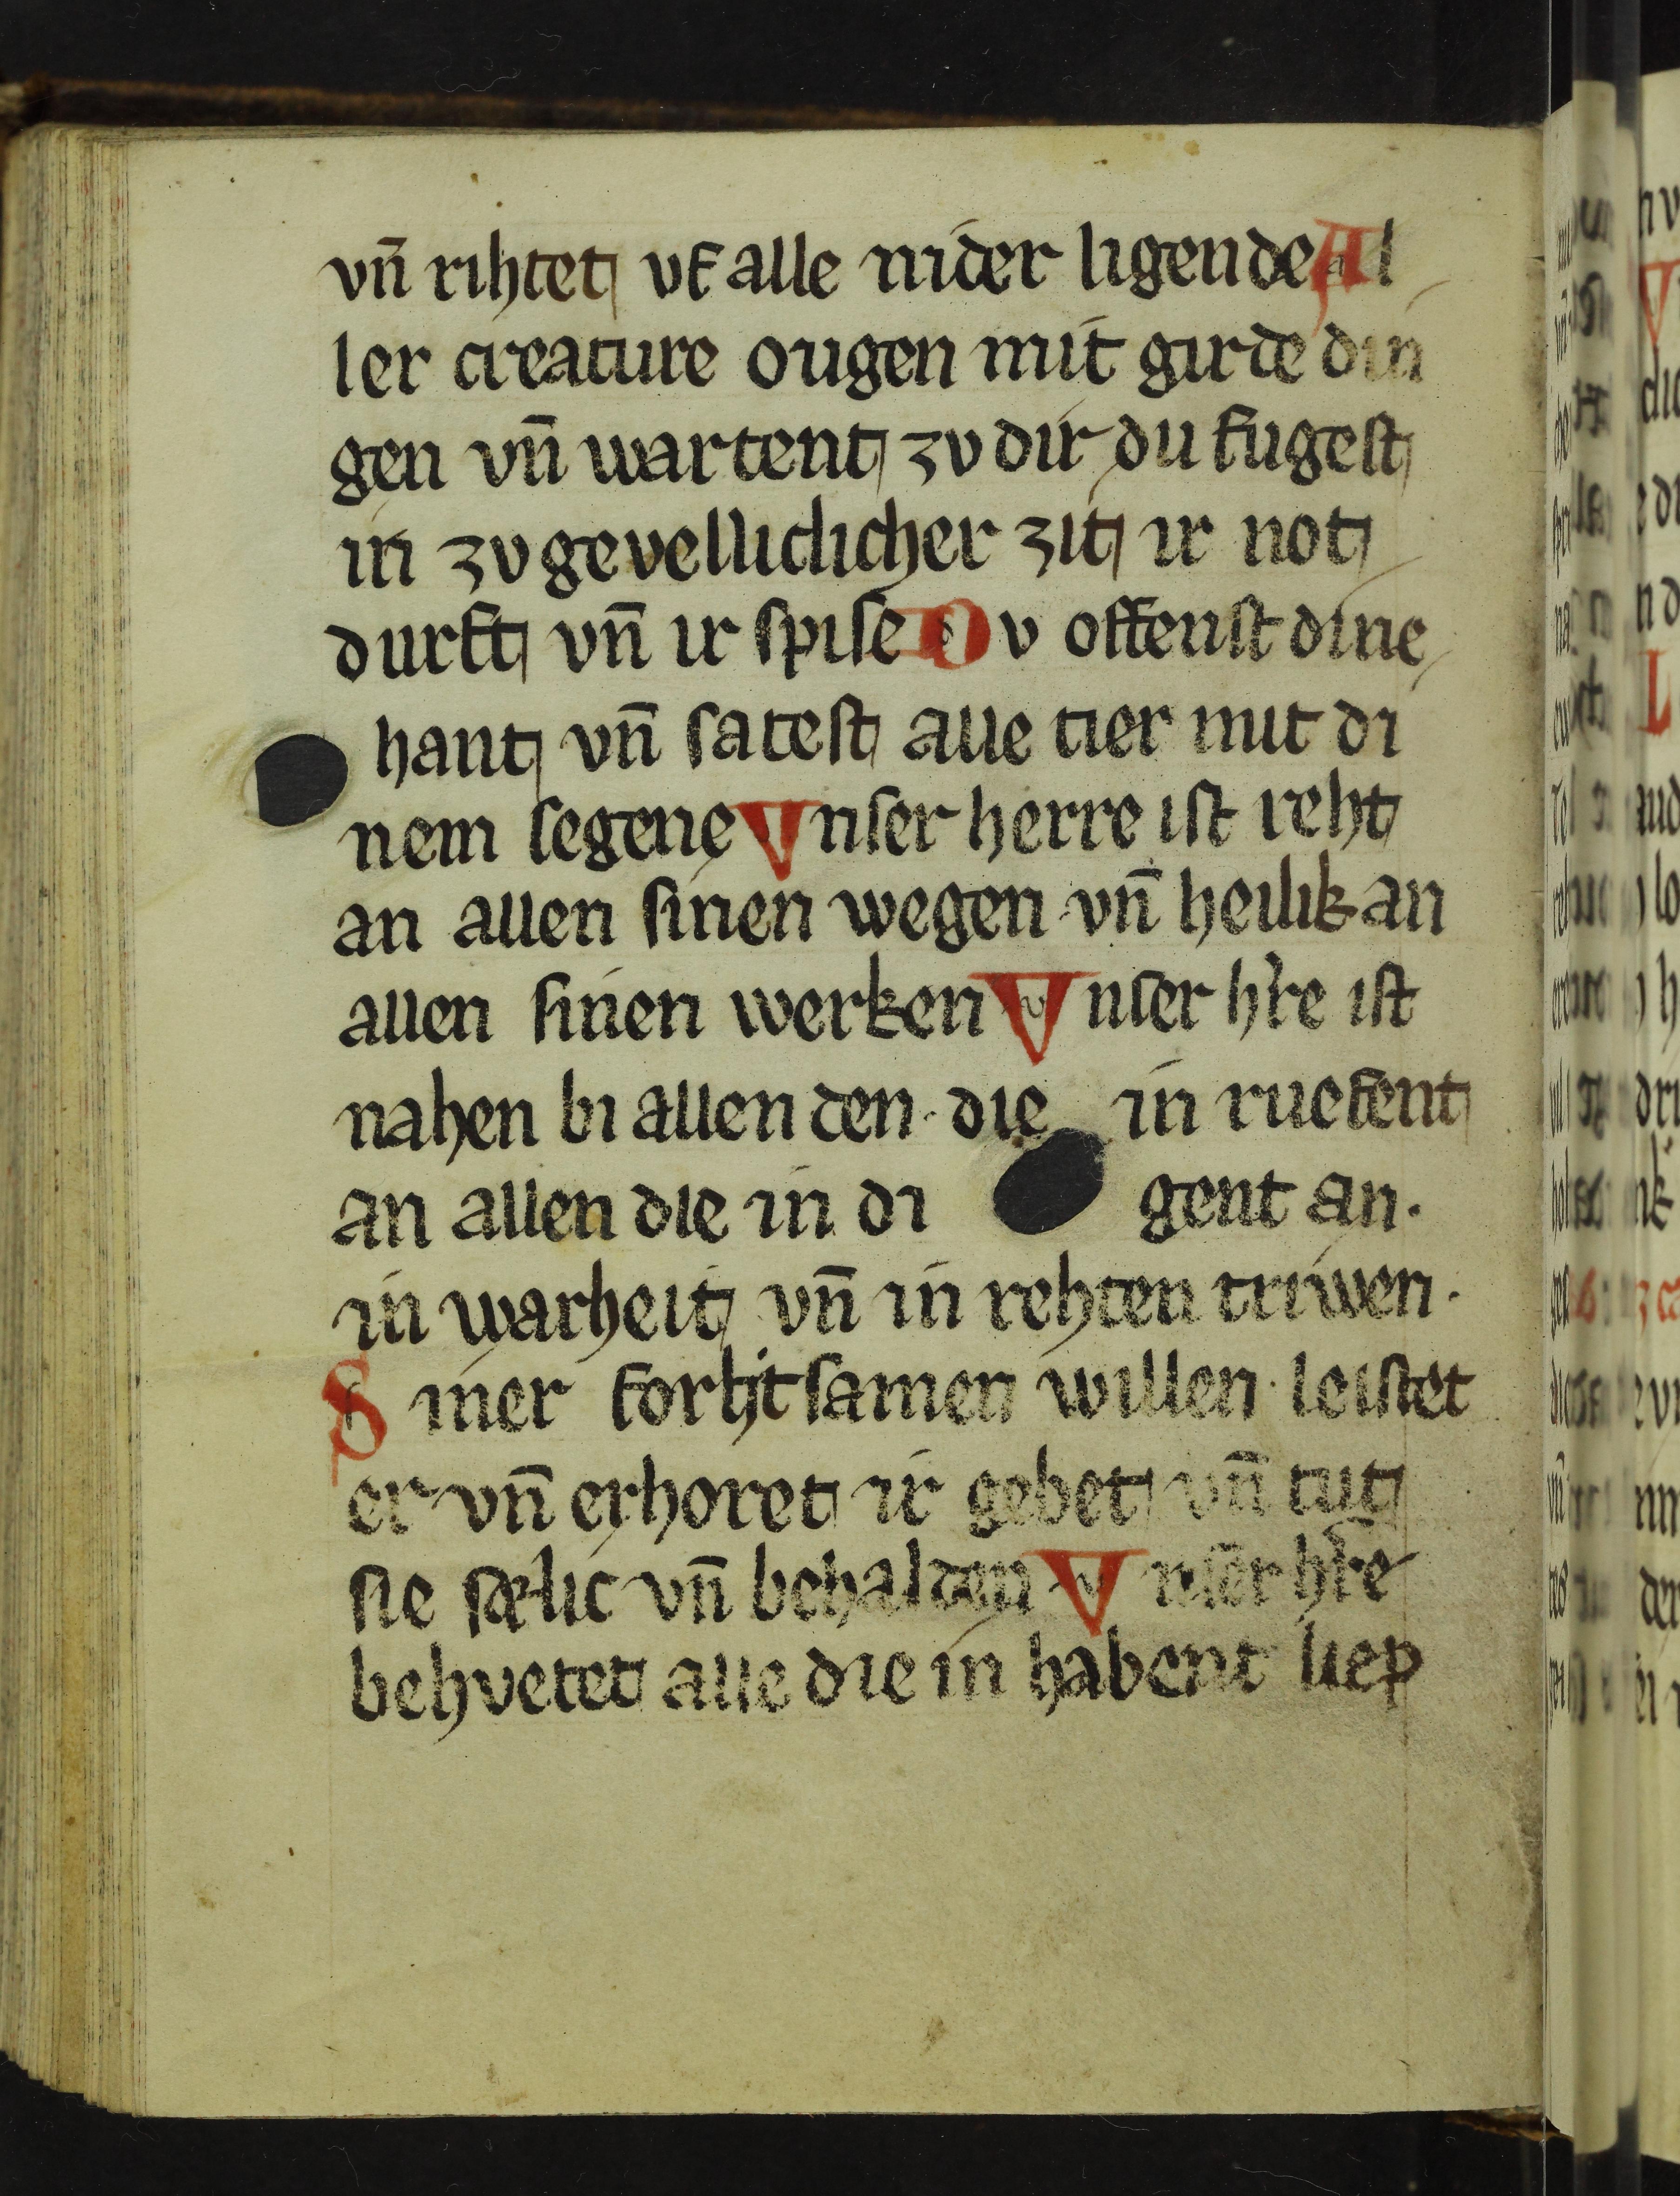 vn̄ rihtet vf alle nider ligende Al
ler creature ougen mit girde din
gen vn̄ wartent zv dir du fugeſt
in zv gevelliclicher zit ir not
durft vn̄ ir ſpiſe Dv offenſt dine
hant vn̄ ſateſt alle tier mit di
nem ſegene Vnſer herre iſt reht
an allen ſinen wegen vn̄ heilik an
allen ſinen werken Vnſer hr̄e iſt
nahen bi allen den· die in ruefent
an allen die in di gent an·
in warheit vn̄ in rehten triwen·
Siner forhtſamen willen leiſtet
er vn̄ erhoret ir gebet vn̄ tut
ſie ſælic vn̄ behalten Vnſer hr̄e
behvetet alle die in habent liep